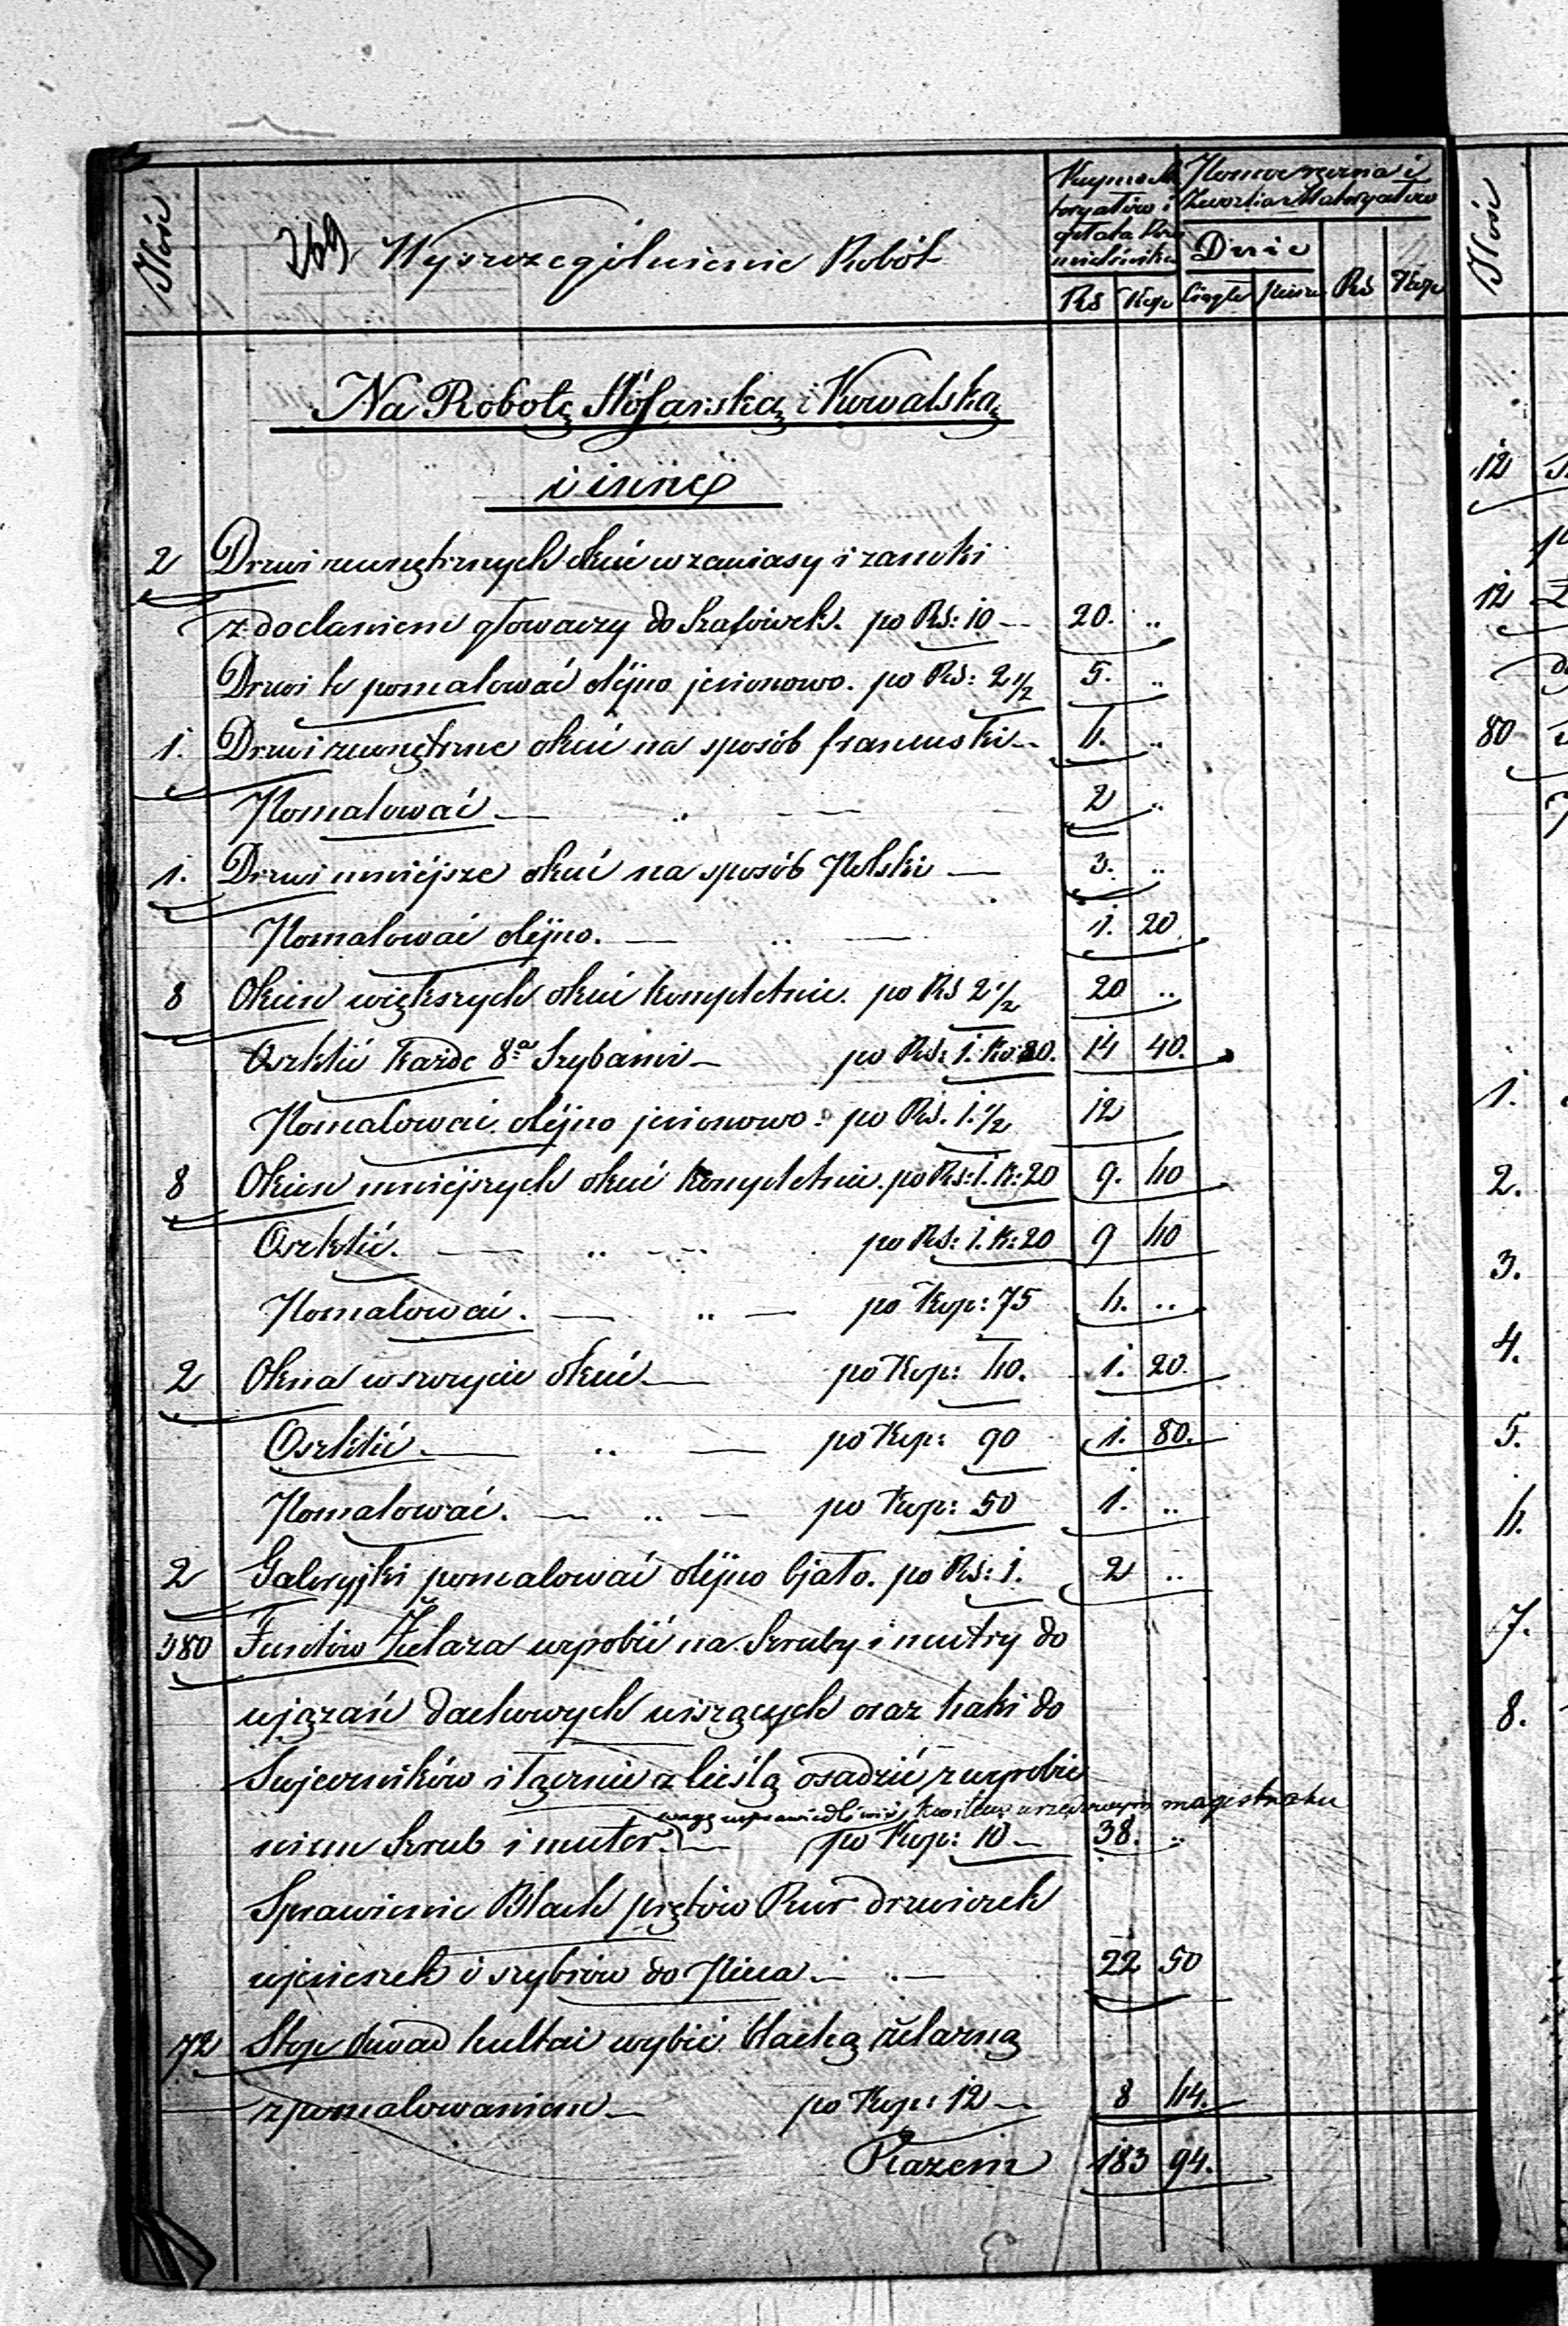 Ilość
269 Wyszczególnienie Robót
Kupno Ma
teryałów i
opłata Rze
mieślnika
Pomocnicy i
Zwozka Materyałów
Dnie
Rs Kop Ciągłe Piesze Rs Kop
Ilość
Na Robotę Ślósarską i Kowalską
i inne
2 Drzwi zewnętrznych okuć w zawiasy i zamki
z dodaniem głowaczy do Szafówek. po Rs: 10 — 20. ..
Drzwi te pomalować oléjno jesionowo. po Rs: 2 1/2 5. ..
1. Drzwi zewnętrzne okuć na sposób francuski — 6. ..
Pomalować — .. — 2 ..
1. Drzwi mniéjsze okuć na sposób Polski — 3. ..
Pomalować oléjno. — .. — 1. 20
8 Okien większych okuć kompletnie. po Rs 2 1/2 20 ..
Oszklić każde 8a Szybami — po Rs: 1. Ko: 80. 14 40.
Pomalować oléjno jesionowo. po Rs. 1. 1/2 12
8 Okien mniéjszych okuć kompletnie. po Rs: 1. K: 20 9. 60
Oszklić. — .. — po Rs: 1. K: 20 9 60
Pomalować. — .. — po Kop: 75 6. ..
2 Okna w szczycie okuć — po Kop: 60. 1. 20.
Oszklić. — .. — po Kop: 90 1. 80.
Pomalować. — .. — po Kop: 50 1. ..
2 Galeryjki pomalować oléjno biało. po Rs: 1. 2 ..
380 Funtów Żelaza wyrobić na Szruby i mutry do
wjązań dachowych wiszących oraz haki do
Swjeczników i łącznie z cieślą osadzić z wyrobie
wagę usprawiedliwić kwitem urzędowym magistratu
niem Szrub i muter. — po Kop: 10 — 38. ..
Sprawienie Blach prętów Rur drzwiczek
wjeuszek i szybrów do Pieca — .. — 22 50
72 Stop kwad kulkai wybić blachą żelazną
z pomalowaniem — po Kop: 12 — 8 64.
Razem 183 94.
12
12
80
1.
2.
3.
4.
5.
6.
7.
8.